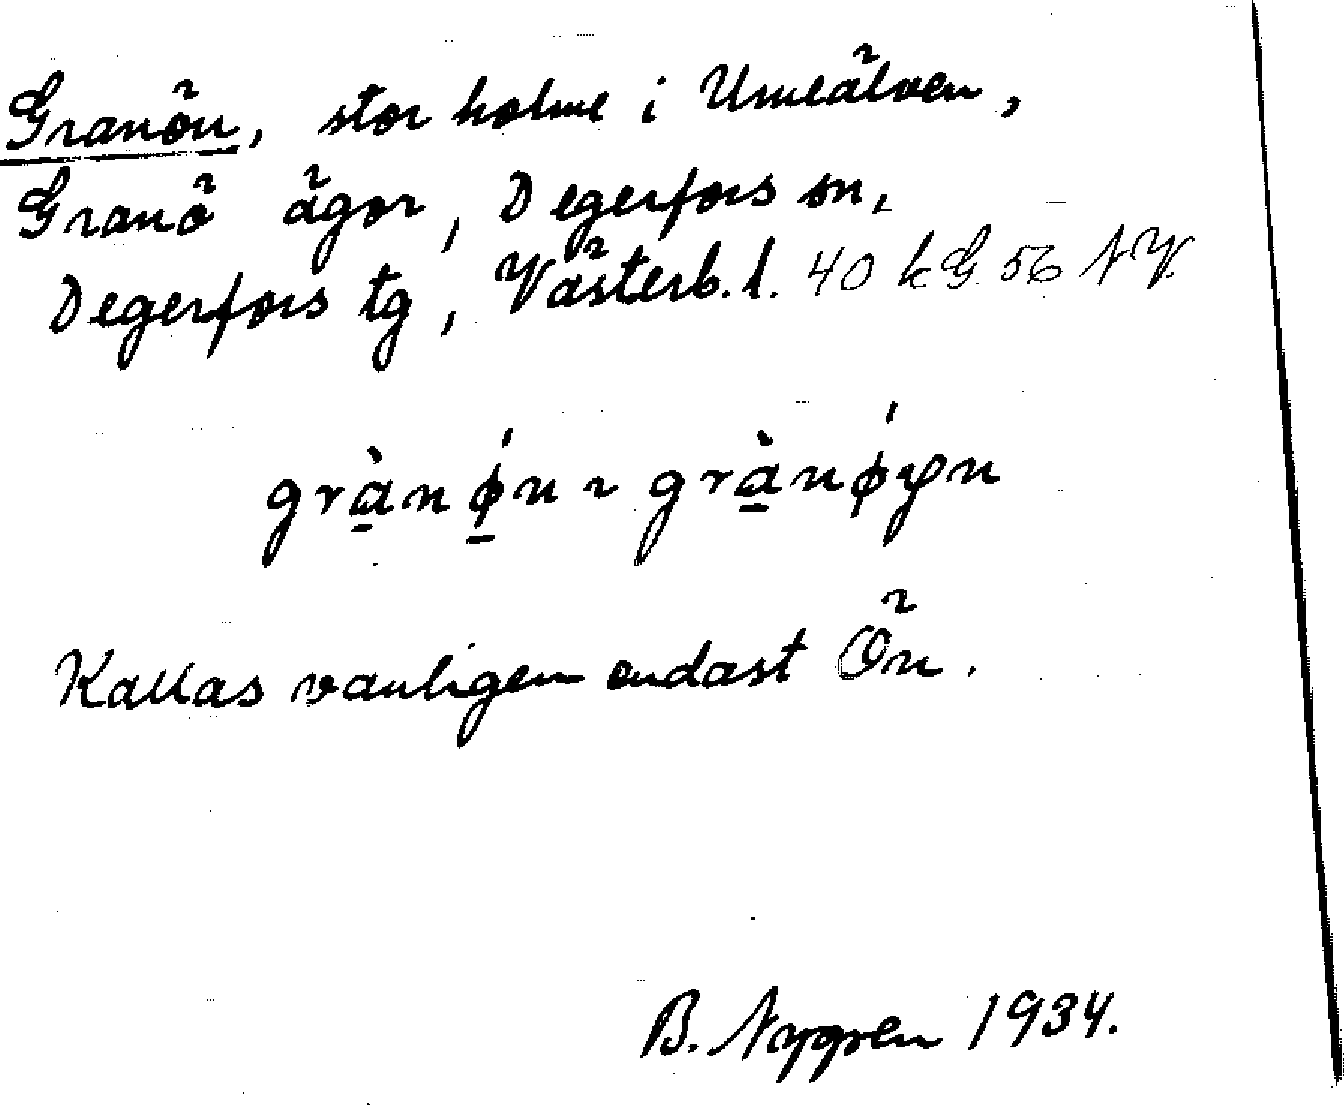 Granön, stor holme i Umeälven,
Granö ägor, Degerfors sn,
Degerfors tg, Västerb. l. 40 kG 56 NV.
grànǿn ~ grànǿyn
Kallas vanligen endast Ön.
B. Nygren 1934.